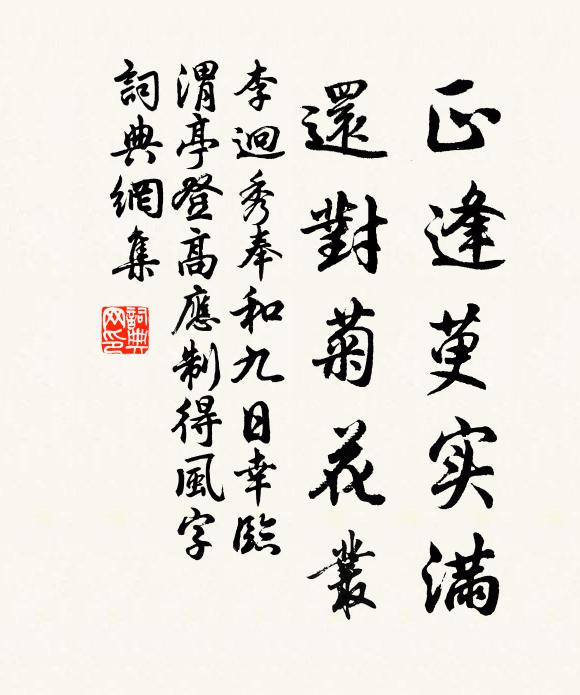 正逢萸实滿
還對菊花叢
李迥秀奉和九日幸臨
渭亭登高應制得風字
詞典網集
詞典网印